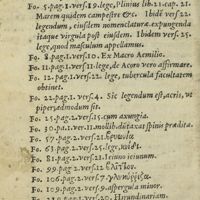 Fo. 5. pag. 1. vers. 19. lege, Plinius lib. 21. cap. 21.
Marem quidem campestre &c. Ibidē vers. 22.
legendum, eiusdem nomenclaturæ. expungenda
itaque virgula post eiusdem. Ibidem vers. 25.
lege, quod masculum appellamus.
Fo. 8. pag. 1. vers. 10. Ex Macro Aemilio.
Fo. 11. pag. 1. vers. 11. lege, de Acoro vero affirmare.
Fo. 12. pag. 1. vers. 22. lege, tubercula facultatem
obtinet.
Fo. 22. pag. 1. vers. 4. Sic legendum est, acris, vt
piper, admodum sit.
Fo. 25. pag. 1. vers. 15. cum axungia.
Fo. 30. pa. 1. ver. 11. mollib. dūtaxat spinis prædita.
Fo. 57. pag. 2. vers. 21.
Fo. 65. pag. 1. vers. 25. lege,
Fo. 82. pag. 1. vers. 21. Ieiuno ieiunum.
Fo. 99. pag. 2. vers. 12.
Fo. 106. pag. 2. vers. 7.
Fo. 109. pag. 2. vers. 9. aspergula minor.
pag. 2. vers. 20. Hirundinariam.